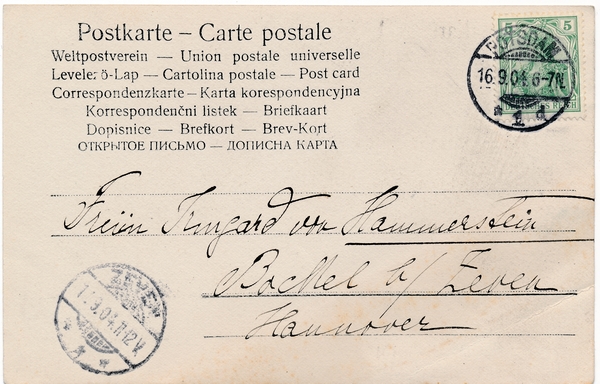 Postkarte – Carte postale
Weltpostverein — Union postale universelle
Levelező-Lap — Cartolina postale — Post card
Correspondenzkarte – Karta korespondencyjna
Korrespondenční listek — Briefkaart
Dopisnice — Brefkort — Brev-Kort
ОТКРЫТОЕ ПИСЬМО — ДОПИСНА КАРТА
5 5
POTSDAM
16.9.04. 6-7N.
* 1 d
Freiin Irmgard von Hammerstein
Bockel b/ Zeven
Hannover
ZEVEN
17.9.04. 11-12V.
* 1 *